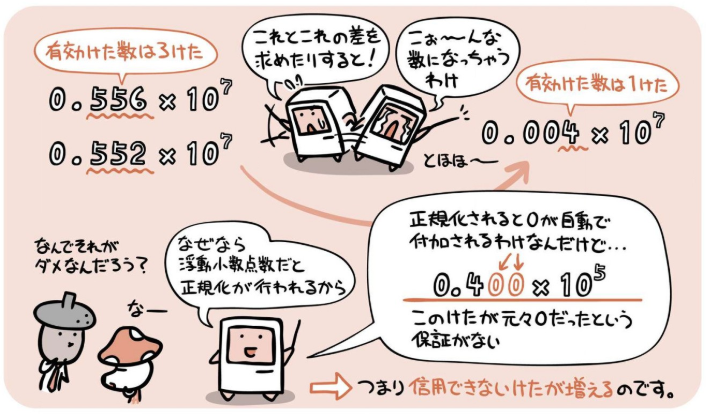 有効けた数は3けた
0.556 × 10⁷
0.552 × 10⁷
これとこれの差を
求めたりすると！
こぉ〜〜んな
数になっちゃう
わけ
有効けた数は1けた
0.004 × 10⁷
とほほ〜
なんでそれが
ダメなんだろう？
なー
なぜなら
浮動小数点数だと
正規化が行われるから
正規化されると0が自動で
付加されるわけなんだけど…
0.400 × 10⁵
このけたが元々0だったという
保証がない
つまり信用できないけたが増えるのです。